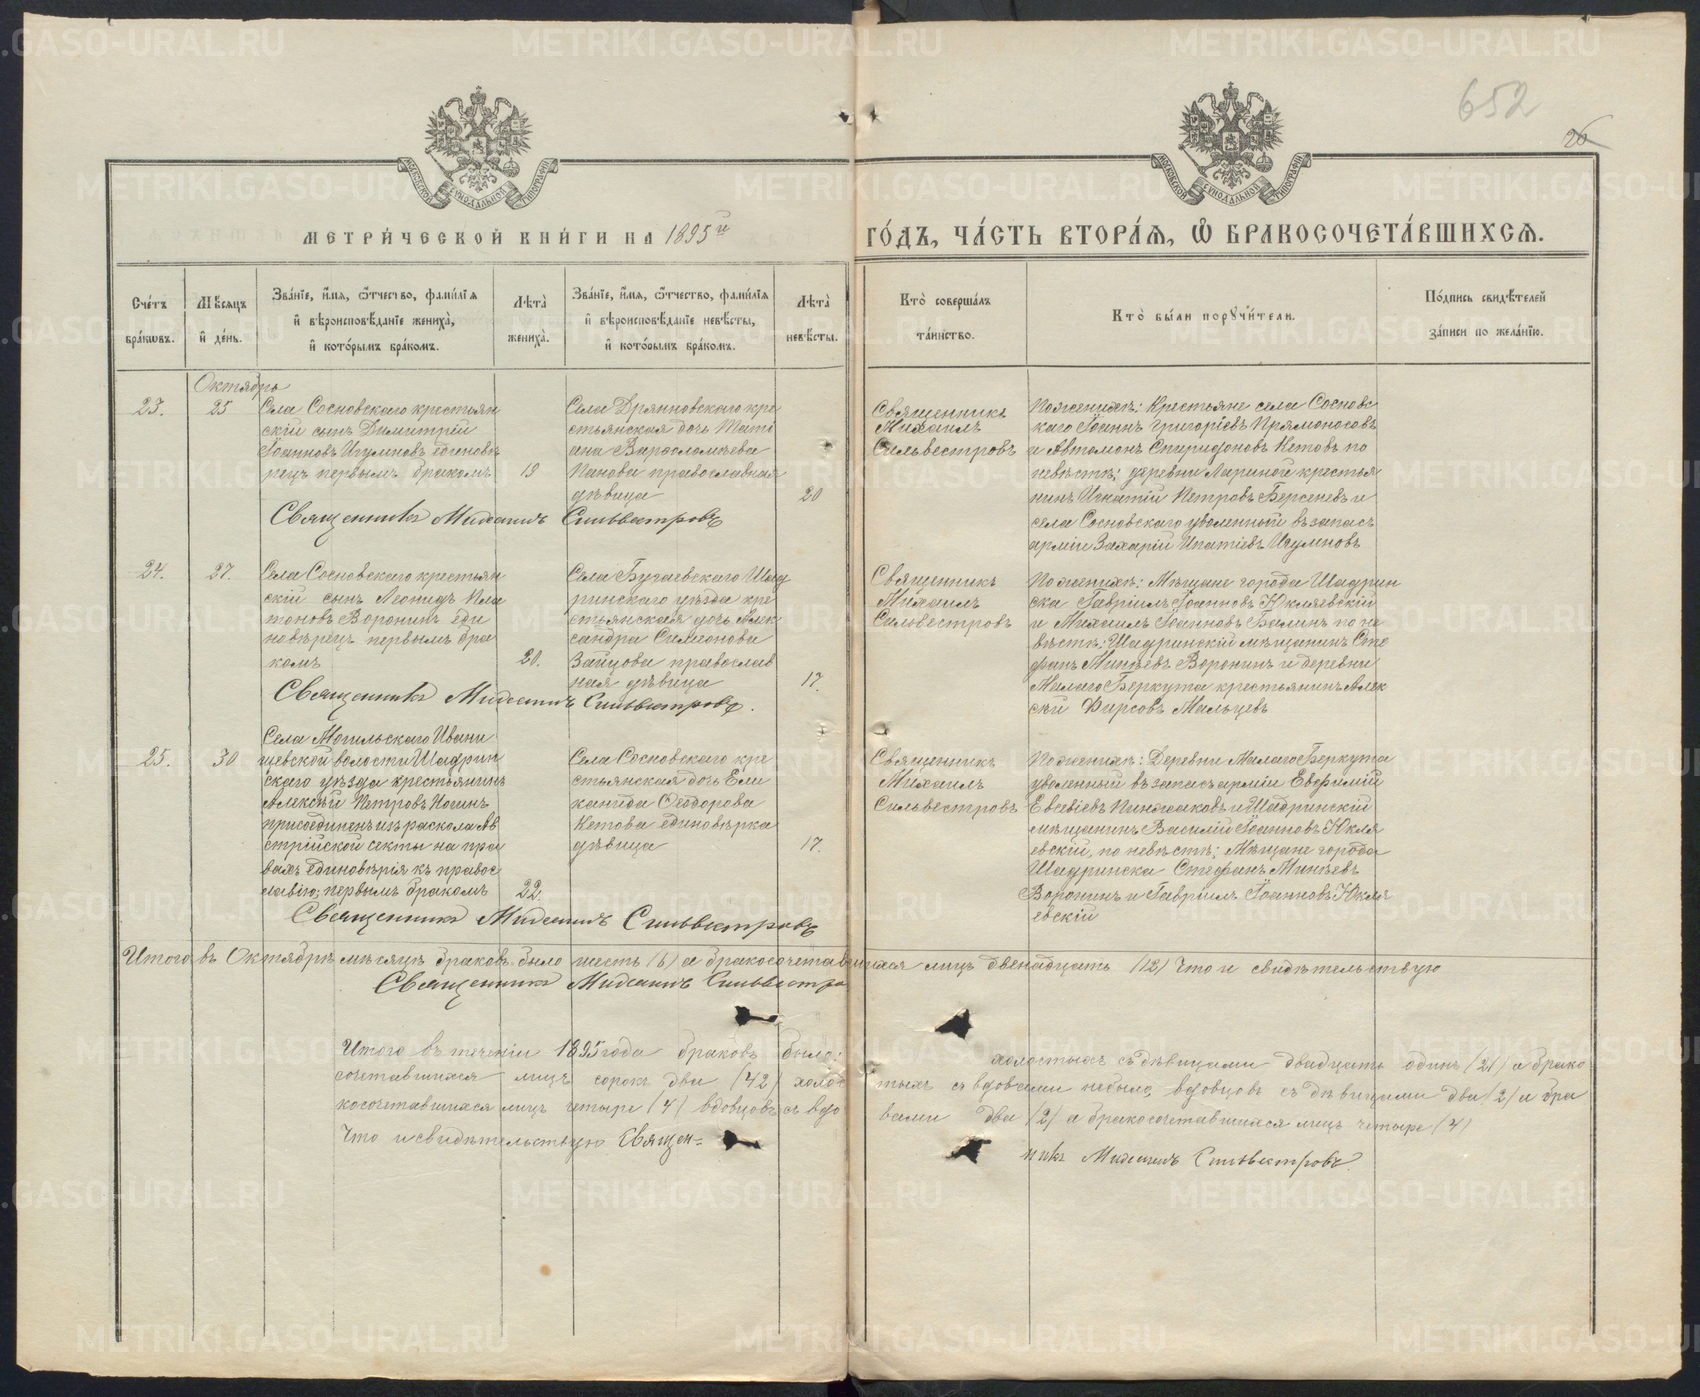 652
26
МОСКОВСКОЙ СУНОДАЛЬНОЙ ТИПОГРАФІИ
МОСКОВСКОЙ СУНОДАЛЬНОЙ ТИПОГРАФІИ
МЕТРИ́ЧЕСКОЙ КНИ́ГИ НА 1895й
ГО́ДЪ, ЧА́СТЬ ВТОРА́Ѧ, Ѡ҆ БРАКОСОЧЕТА́ВШИХСѦ.
Сче́тъ бра́кωвъ.
Мѣ́сяцъ и҆ де́нь.
Зва́нїе, и҆́мѧ, ѻ҆́тчество, фами́лїѧ и҆ вѣроисповѣ́данїе жениха̀, и҆ кото́рымъ бра́комъ.
Лѣта̀ жениха̀.
Зва́нїе, и҆́мѧ, ѻ҆́тчество, фами́лїѧ и҆ вѣроисповѣ́данїе невѣ́сты, и҆ кото́рымъ бра́комъ.
Лѣта̀ невѣ́сты.
Кто̀ соверша́лъ та́инство.
Кто̀ бы́ли порꙋчи́тели.
По́дпись свидѣ́телей за́писи по жела́нїю.
Октябрь
23.
25
Села Сосновскаго крестьян
скій сынъ Димитрій
Іоанновъ Игумновъ единовѣ
рецъ первымъ бракомъ
19
Села Дрянновскаго кре
стьянская дочь Тати
ана Варѳоломѣева
Панова православная
дѣвица
20
Священникъ
Михаилъ
Сильвестровъ
По женихѣ: Крестьяне села Соснов
каго Іоаннъ Григоріевъ Прямоносовъ
и Автомонъ Спиридоновъ Кетовъ по
невѣстѣ: деревни Лариной крестья
нинъ Игнатій Петровъ Берсеневъ и
села Сосновскаго уволенный въ запасъ
арміи Захарій Ипатіевъ Игумновъ
Священникъ Михаилъ Сильвестровъ
24.
27.
Села Сосновскаго крестьян
скій сынъ Леонидъ Пла
тоновъ Воронинъ еди
новѣрецъ первымъ бра
комъ
20.
Села Бугаевскаго Шад
ринскаго уѣзда кре
стьянская дочь Алек
сандра Симеонова
Зайцова православ
ная дѣвица
17.
Священникъ
Михаилъ
Сильвестровъ
По женихѣ: Мѣщане города Шадрин
ска Гавріилъ Іоанновъ Юкляевскій
и Михаилъ Іоанновъ Балинъ по не
вѣстѣ: Шадринскій мѣщанинъ Сте
фанъ Минѣевъ Воронинъ и деревни
Малаго Беркута крестьянинъ Алек
сѣй Фирсовъ Мальцевъ
Священникъ Михаилъ Сильвестровъ.
25.
30
Села Могильскаго Ивани
щевской волости Шадрин
скаго уѣзда крестьянинъ
Алексѣй Петровъ Носинъ
присоединенъ изъ раскола Ав
стрійской секты на пра
вахъ единовѣрія къ правос
лавію; первымъ бракомъ
22.
Села Сосновскаго кре
стьянская дочь Ели
канида Ѳеодорова
Кетова единовѣрка
дѣвица
17.
Священникъ
Михаилъ
Сильвестровъ
По женихѣ: Деревни Малаго Беркута
уволенный въ запасъ арміи Евфимій
Евсевіевъ Пинжаковъ и Шадринскій
мѣщанинъ Василій Іоанновъ Юкля
евскій, по невѣстѣ: Мѣщане города
Шадринска Стефанъ Минѣевъ
Воронинъ и Гавріилъ Іоанновъ Юкля
евскій
Священникъ Михаилъ Сильвестровъ
Итого въ Октябрѣ мѣсяцѣ браковъ было шесть (6) а бракосочетавшихся лицъ двенадцать (12) Что и свидѣтельствую
Священникъ Михаилъ Сильвестро
Итого въ теченіи 1895 года браковъ было: холостыхъ съ дѣвицами двадцать одинъ (21) а брако
сочетавшихся лицъ сорокъ два (42) холос тыхъ съ вдовами небыло, вдовцовъ съ дѣвицами два (2) а бра
косочетавшихся лицъ четыре (4) вдовцовъ съ вдо вами два (2) а бракосочетавшихся лицъ четыре (4)
Что и свидѣтельствую Священ= никъ Михаилъ Сильвестровъ.
METRIKI.GASO-URAL.RU